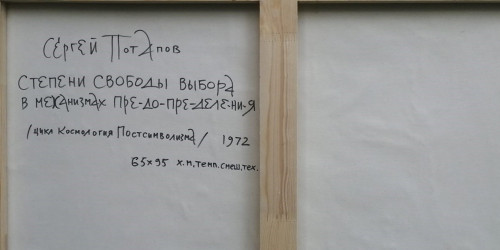 Сергей Потапов
СТЕПЕНИ СВОБОДЫ ВЫБОРА
В МЕХАНИЗМАХ ПРЕ-ДО-ПРЕ-ДЕЛЕ-НИ-Я
/цикл Космология Постсимволизма/ 1972
65×95 х.м,темп.смеш,тех.